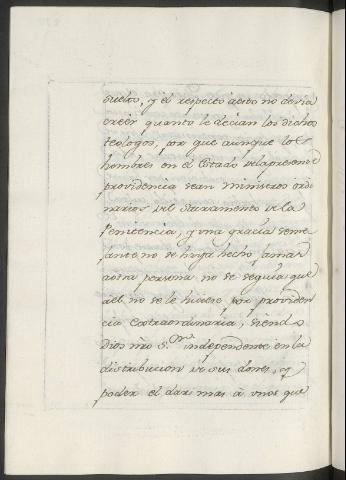 suelto, y él respecto àesto no devia
creér quanto le decian los dichos
teologos, por que aunque los
hombres en el Estado dela presente
providencia sean ministros ordi
narios del Sacramento dela
Penitencia, y una gracia seme
jante no se haya hecho jamas
aotra persona, no se seguia que
aél no se le hiciese, por providen
cia extraordinaria, siendo
Dios nro S.or independente en la
distribucion de sus dones, y
poder el dar mas à unos que